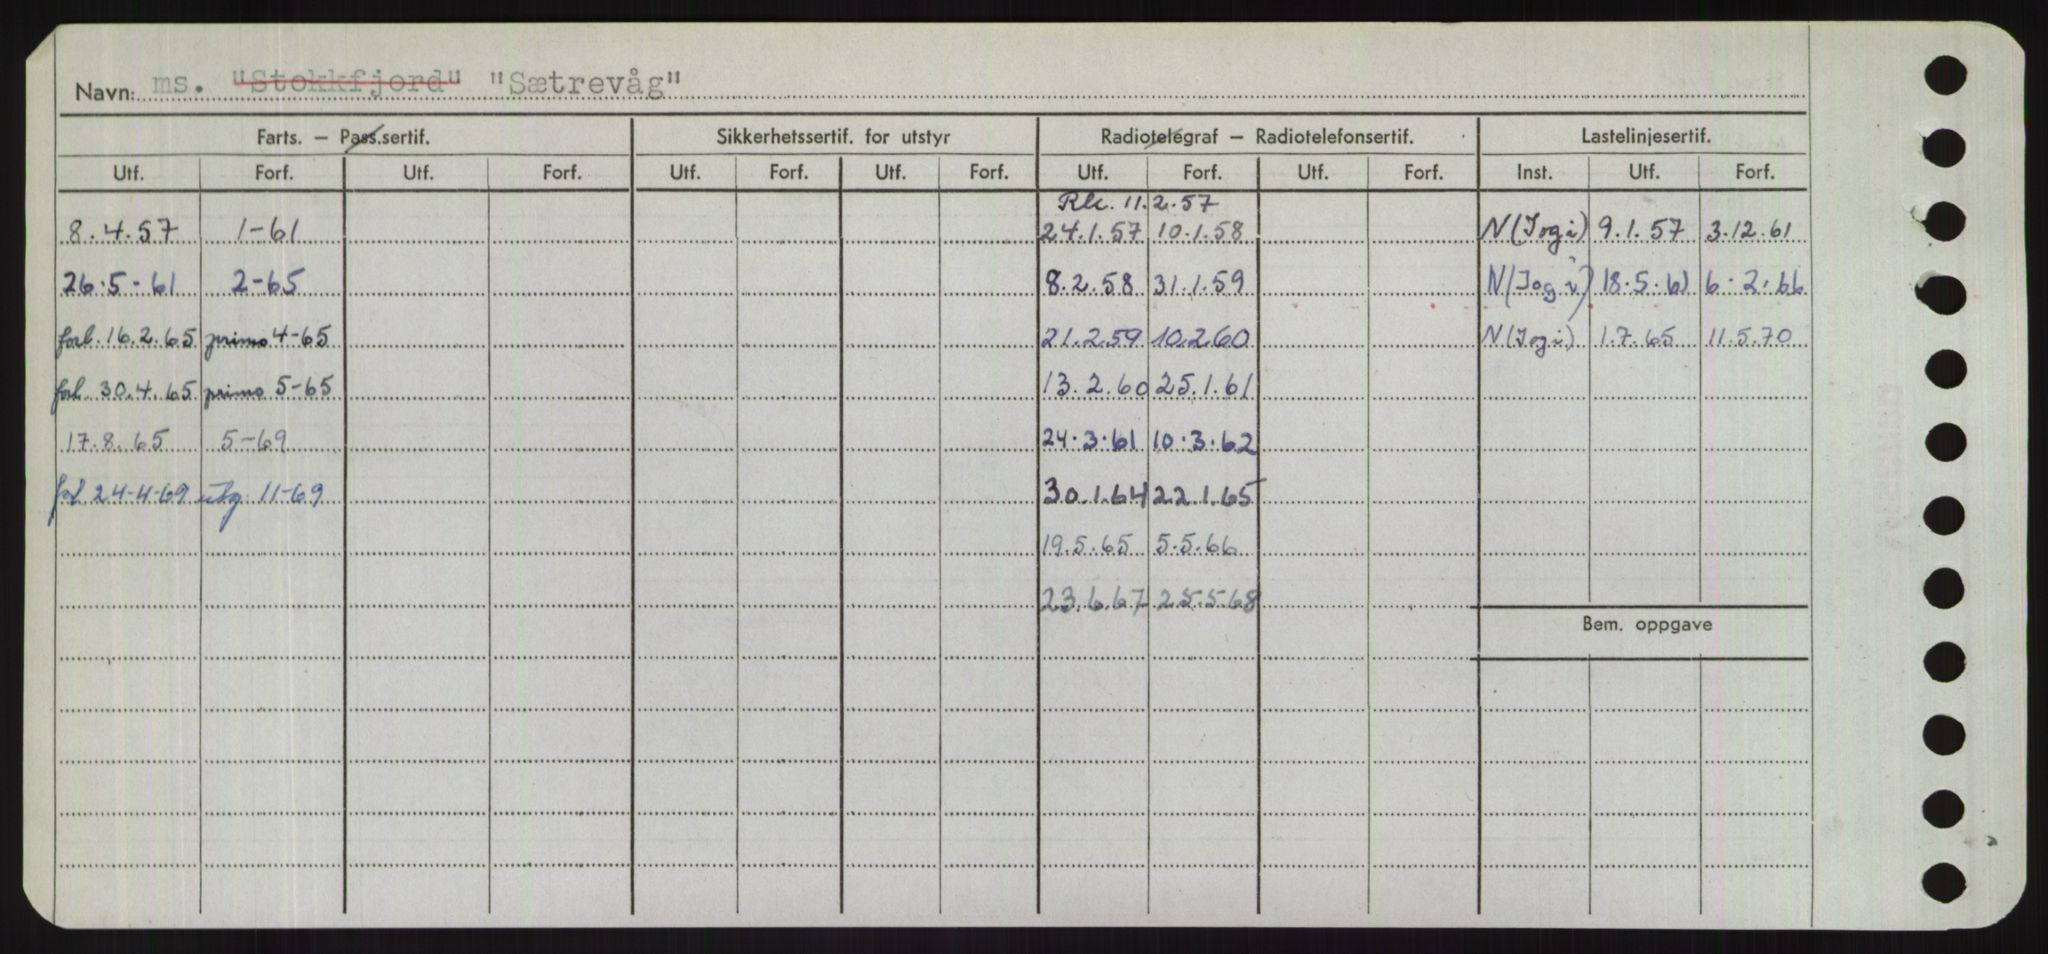 Navn: ms. "Stokkfjord" "Sætrevåg"
Farts. — Pass.sertif. Sikkerhetssertif. for utstyr Radiotelegraf — Radiotelefonsertif. Lastelinjesertif.
Utf. Forf. Utf. Forf. Utf. Forf. Utf. Forf. Utf. Forf. Utf. Forf. Inst. Utf. Forf.
Rk. 11.2.57
8.4.57 1-61 24.1.57 10.1.58 N(Iogi) 9.1.57 3.12.61
26.5-61 2-65 8.2.58 31.1.59 N(Iogi) 18.5.61 6.2.66
forl. 16.2.65 primo 4-65 21.2.59 10.2.60 N(Iogi) 1.7.65 11.5.70
forl. 30.4.65 primo 5-65 13.2.60 25.1.61
17.8.65 5-69 24.3.61 10.3.62
forl 24-4-69 utg. 11-69 30.1.64 22.1.65
19.5.65 5.5.66
23.6.67 25.5.68
Bem. oppgave